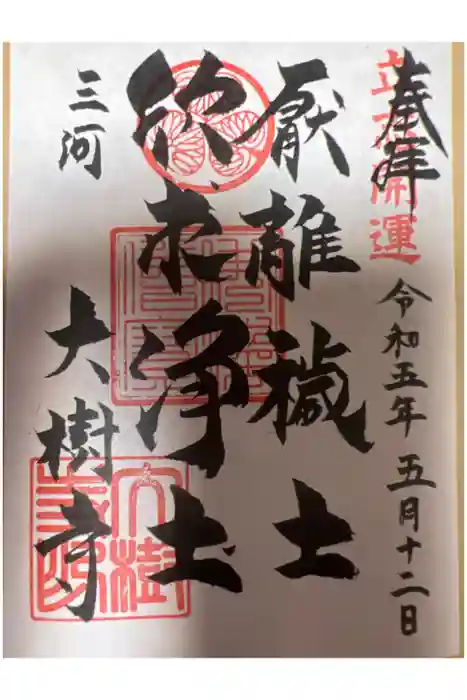 奉拝
開運
令和五年五月十二日
厭離穢土
欣求浄土
三河
大樹寺